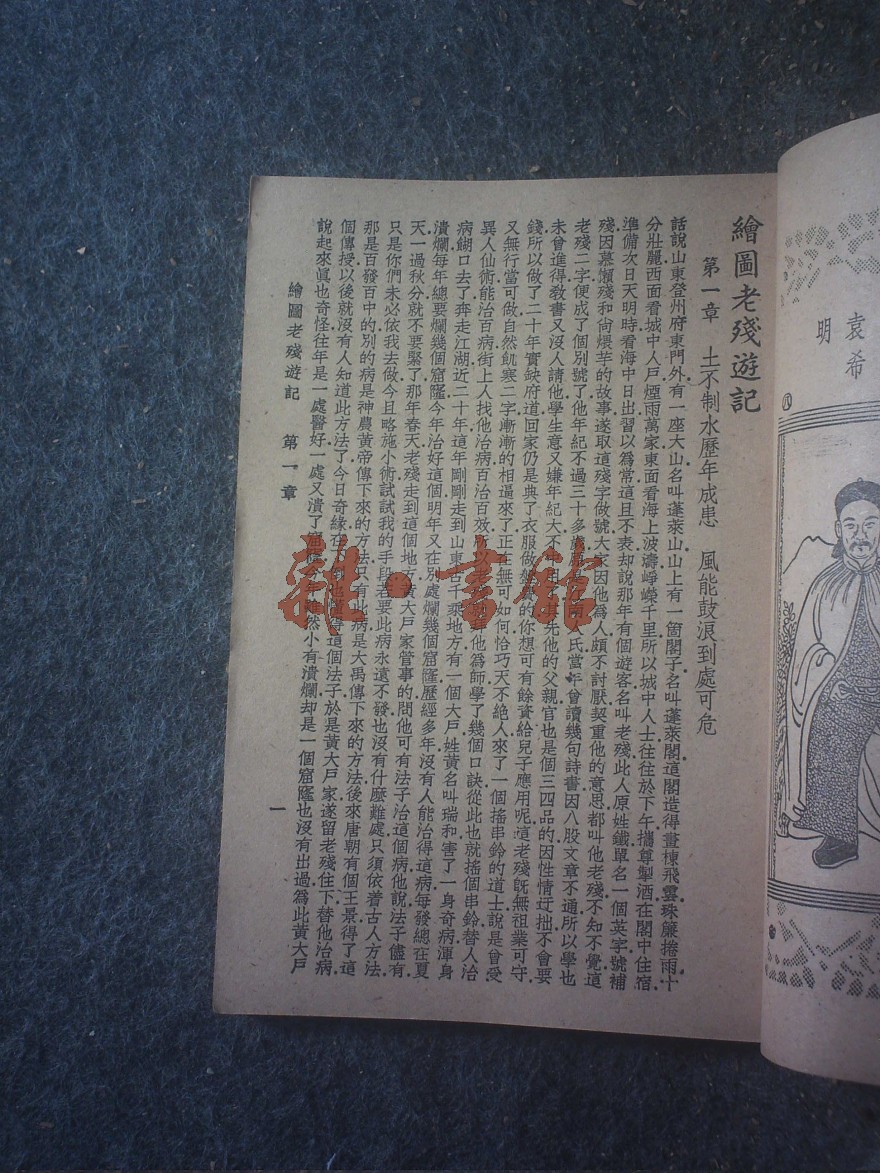 繪圖老殘遊記
第一章 土不制水歷年成患 風能鼓浪到處可危
話說山東登州府東門外有一座大山名叫蓬萊山山上有一箇閣子名叫蓬萊閣這閣造得畫棟飛雲珠簾捲雨十
分壯麗西面看城中人戶煙雨萬家東面看海上波濤崢嶸千里所以城中人士往往於下午攜尊挈酒在閣中住宿
準備次日天明時看海中日出習以爲常這且不表却說那年有個遊客名叫老殘此人原姓鐵單名一個英字號補
殘因慕懶殘和尙煨芋的故事遂取這殘字做號大家因他爲人頗不討厭契重他的意思都叫他老殘不知不覺這
老殘二字便成了個別號了他年紀不過三十多歲原 人氏當年曾讀幾句詩書因八股文章不通所以學也
未曾進得敎書又沒人請他學生意又嫌年紀大不中 其先他的父親官也是個三四品的因性情迂拙不會要
錢所以做了二十年實缺府道回家仍是典了衣服做盤 的你想可有餘資給兒子應用呢這老殘旣無祖業可守
又無行當可做自然飢寒二字漸漸的相逼來了正在無可如何恰巧天不絕人來了一個搖串鈴的道士說是曾受
異人仙術能治百病街上人找他治病百治百效所以老 他爲師學了幾個口訣從此也就搖個串鈴替人治
病餬口去了奔走江湖近二十年這年剛剛走到山東古千乘地方有一個大戶姓黃名叫瑞和害了一身奇病渾身
潰爛每年總要爛幾個窟窿今年治好這個明年又在別處爛幾個窟窿歷經多年沒有人能治得這病每發總在夏
天一過秋分就不要緊了那年春天老殘走到這個地方黃大戶家管事的問他可有法子治這個病他說法子儘有
只是你們未必依我去做今且略施小術試試我的手段若要此病永遠不發也沒有什麼難處只須依着古人方法
那是百發百中的別的病是神農黃帝傳下來的方法只有此病是大禹傳下來的方法後來唐朝有個王景得了這
個傳授以後就沒有人知道此方法了今日奇緣在 也懂得這個法子於是黃大戶家遂留老殘住下替他治病
說起來眞也奇怪往年是一處醫好一處又潰了窟窿今年雖然小有潰爛却是一個窟窿也沒有出過爲此黃大戶
繪圖老殘遊記 第一章
一
袁希
明
雜·書館